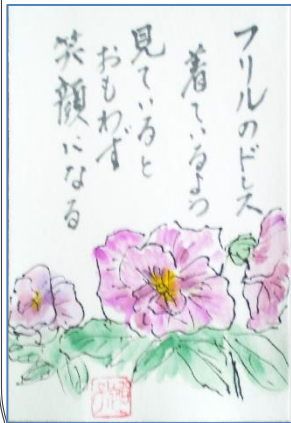 フリルのドレス
着ているよう
見ていると
おもわず
笑顔になる